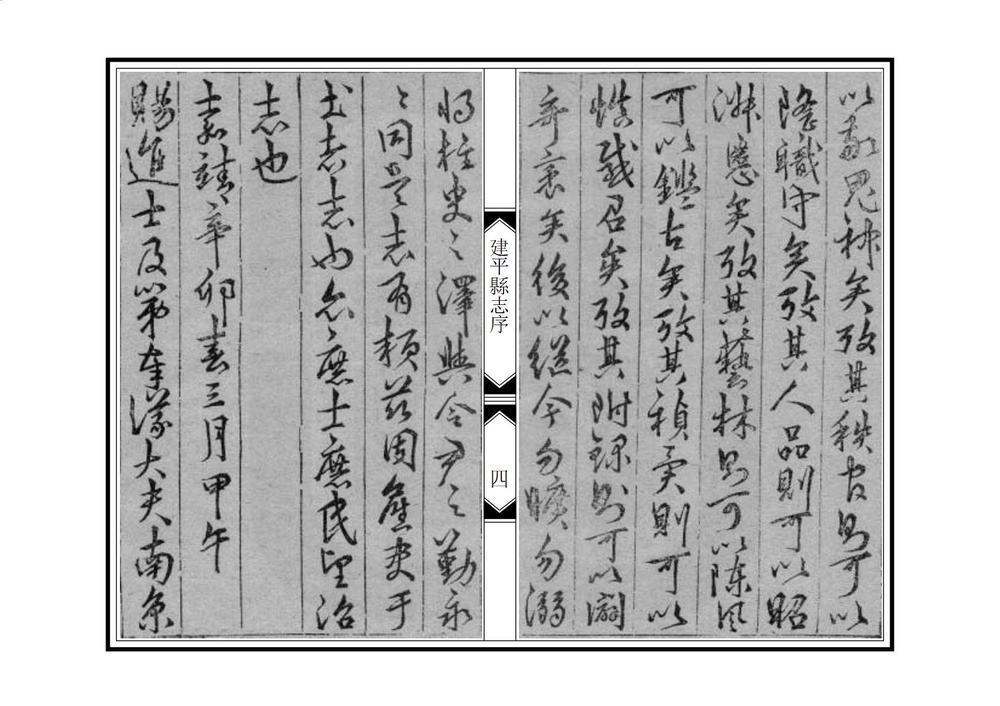 以享鬼神矣攷其秩官則可以
隆職守矣攷其人品則可以昭
淋慝矣攷其藝林則可以陳風
可以鑑古矣攷其禎異則可以
慎感召矣攷其附錄則可以闢
奇衺矣後以繼今勿曠勿溺
建平縣志序
四
將柱史之澤與令尹之勤永
之同是志有賴茲固舊吏于
土志志也如庶士庶民望治
志也
嘉靖辛卯春三月甲午
賜進士及第奉議大夫南京